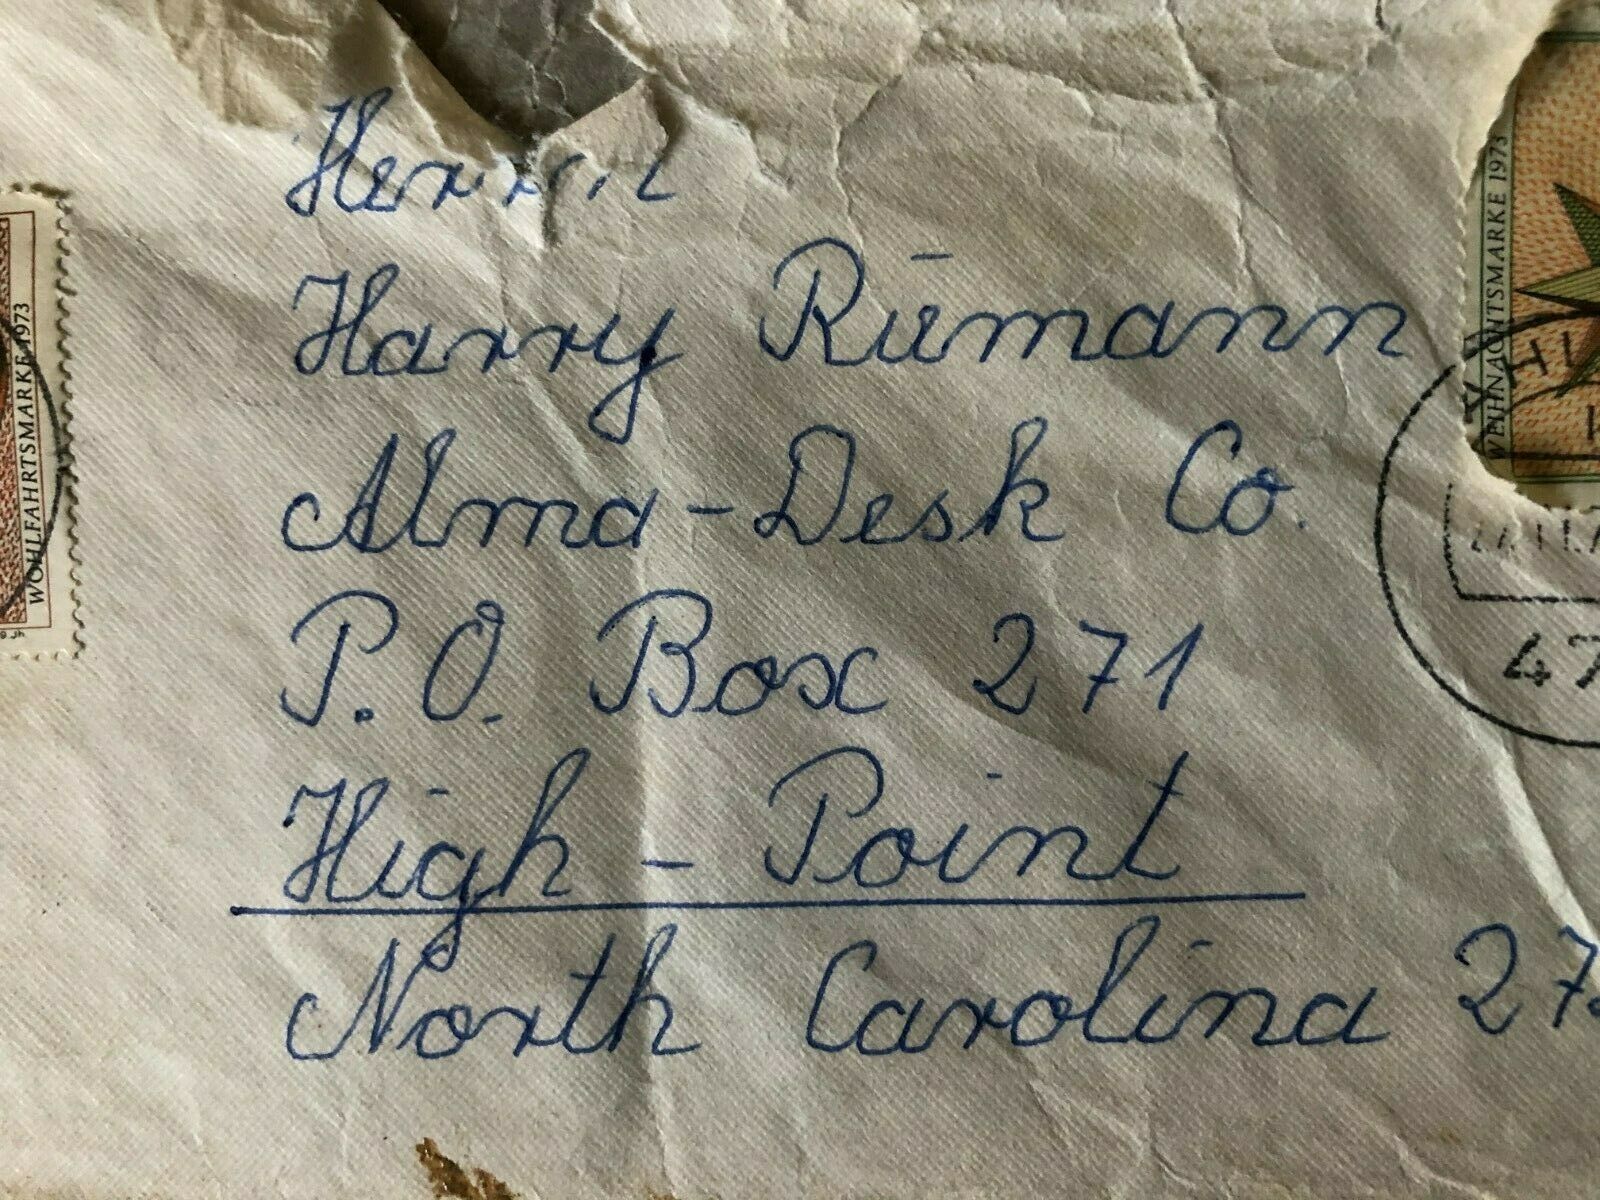 Herrn
Harry Rümann
Alma-Desk Co.
P.O. Box 271
High-Point
North Carolina
WOHLFAHRTSMARKE 1973
WEIHNACHTSMARKE 1973